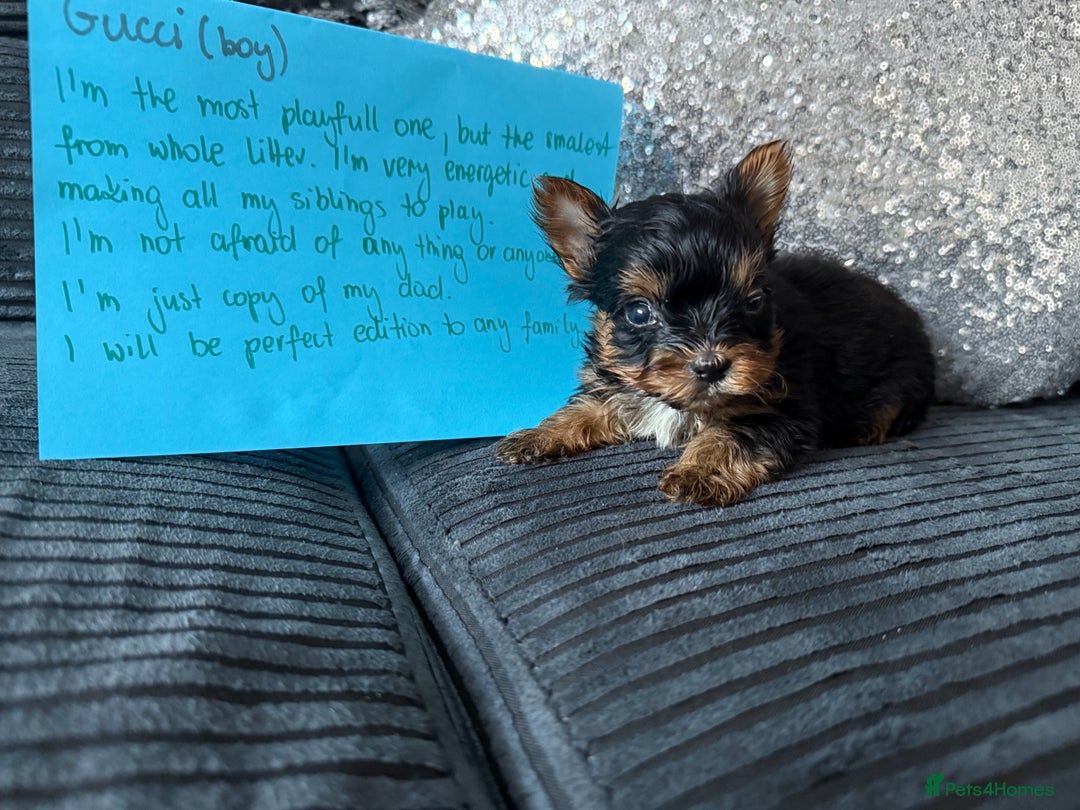 Gucci (boy)
I'm the most playfull one, but the smalest
from whole litter. I'm very energetic
making all my siblings to play.
I'm not afraid of any thing or anyone
I'm just copy of my dad.
I will be perfect edition to any family
Pets4Homes